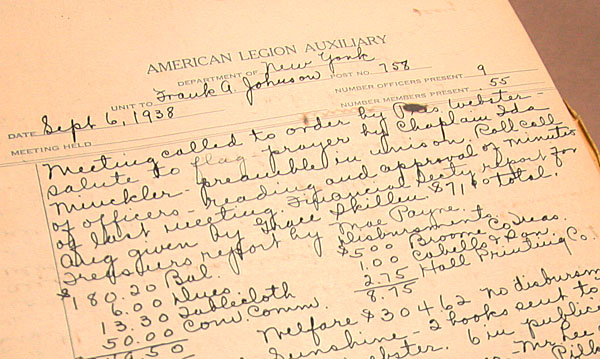 AMERICAN LEGION AUXILIARY
DEPARTMENT OF New York
UNIT TO Frank A. Johnson POST NO. 758
NUMBER OFFICERS PRESENT 9
DATE Sept 6, 1938 NUMBER MEMBERS PRESENT 55
MEETING HELD
Meeting called to order by Pres Webster -
salute to flag - prayer by Chaplain Ida
Munckler - preamble in unison. Roll call
of officers - reading and approval of minutes
of last meeting. Financial Secty report for
Aug given by Grace Skillen $71 total.
Treasurs report by Mae Payne.
disbursements
$180.20 Bal. $5.00 Broome Co. Treas.
6.00 Dues 1.00 Cabells & Son
13.30 Tablecloth 2.75 Hall Printing Co.
50.00 Con. Comm. 8.75
9.50
Welfare $304.62 no disbursm
Sunshine - 2 books sent to
ster. 6 in public
Mr. Lee